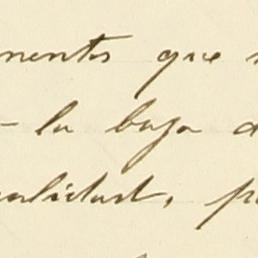 nentos que
la baja d
calidad, p